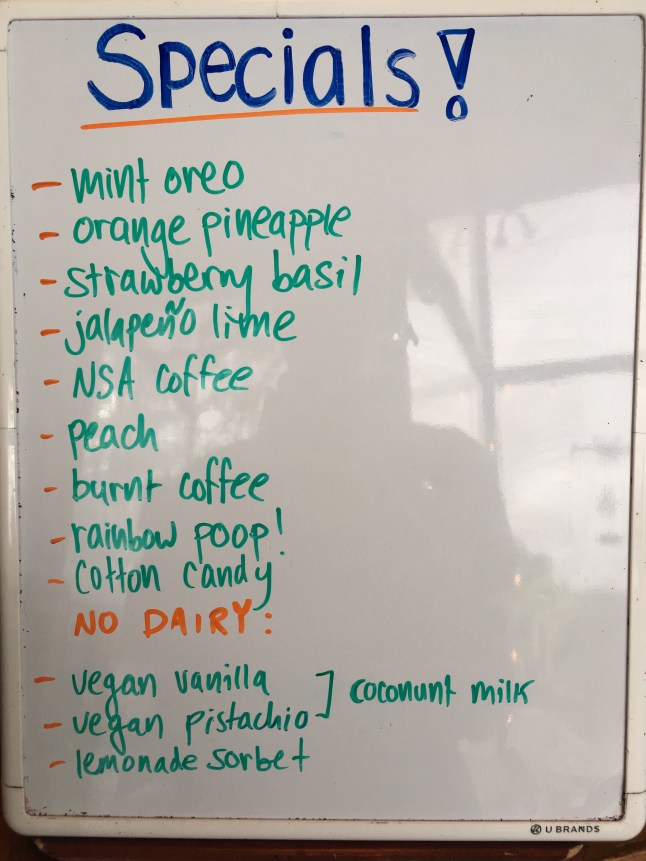 Specials!
- mint oreo
- orange pineapple
- strawberry basil
- jalapeño lime
- NSA coffee
- peach
- burnt coffee
- rainbow poop!
- cotton candy
NO DAIRY:
- vegan vanilla
- vegan pistachio
] coconunt milk
- lemonade sorbet
U BRANDS